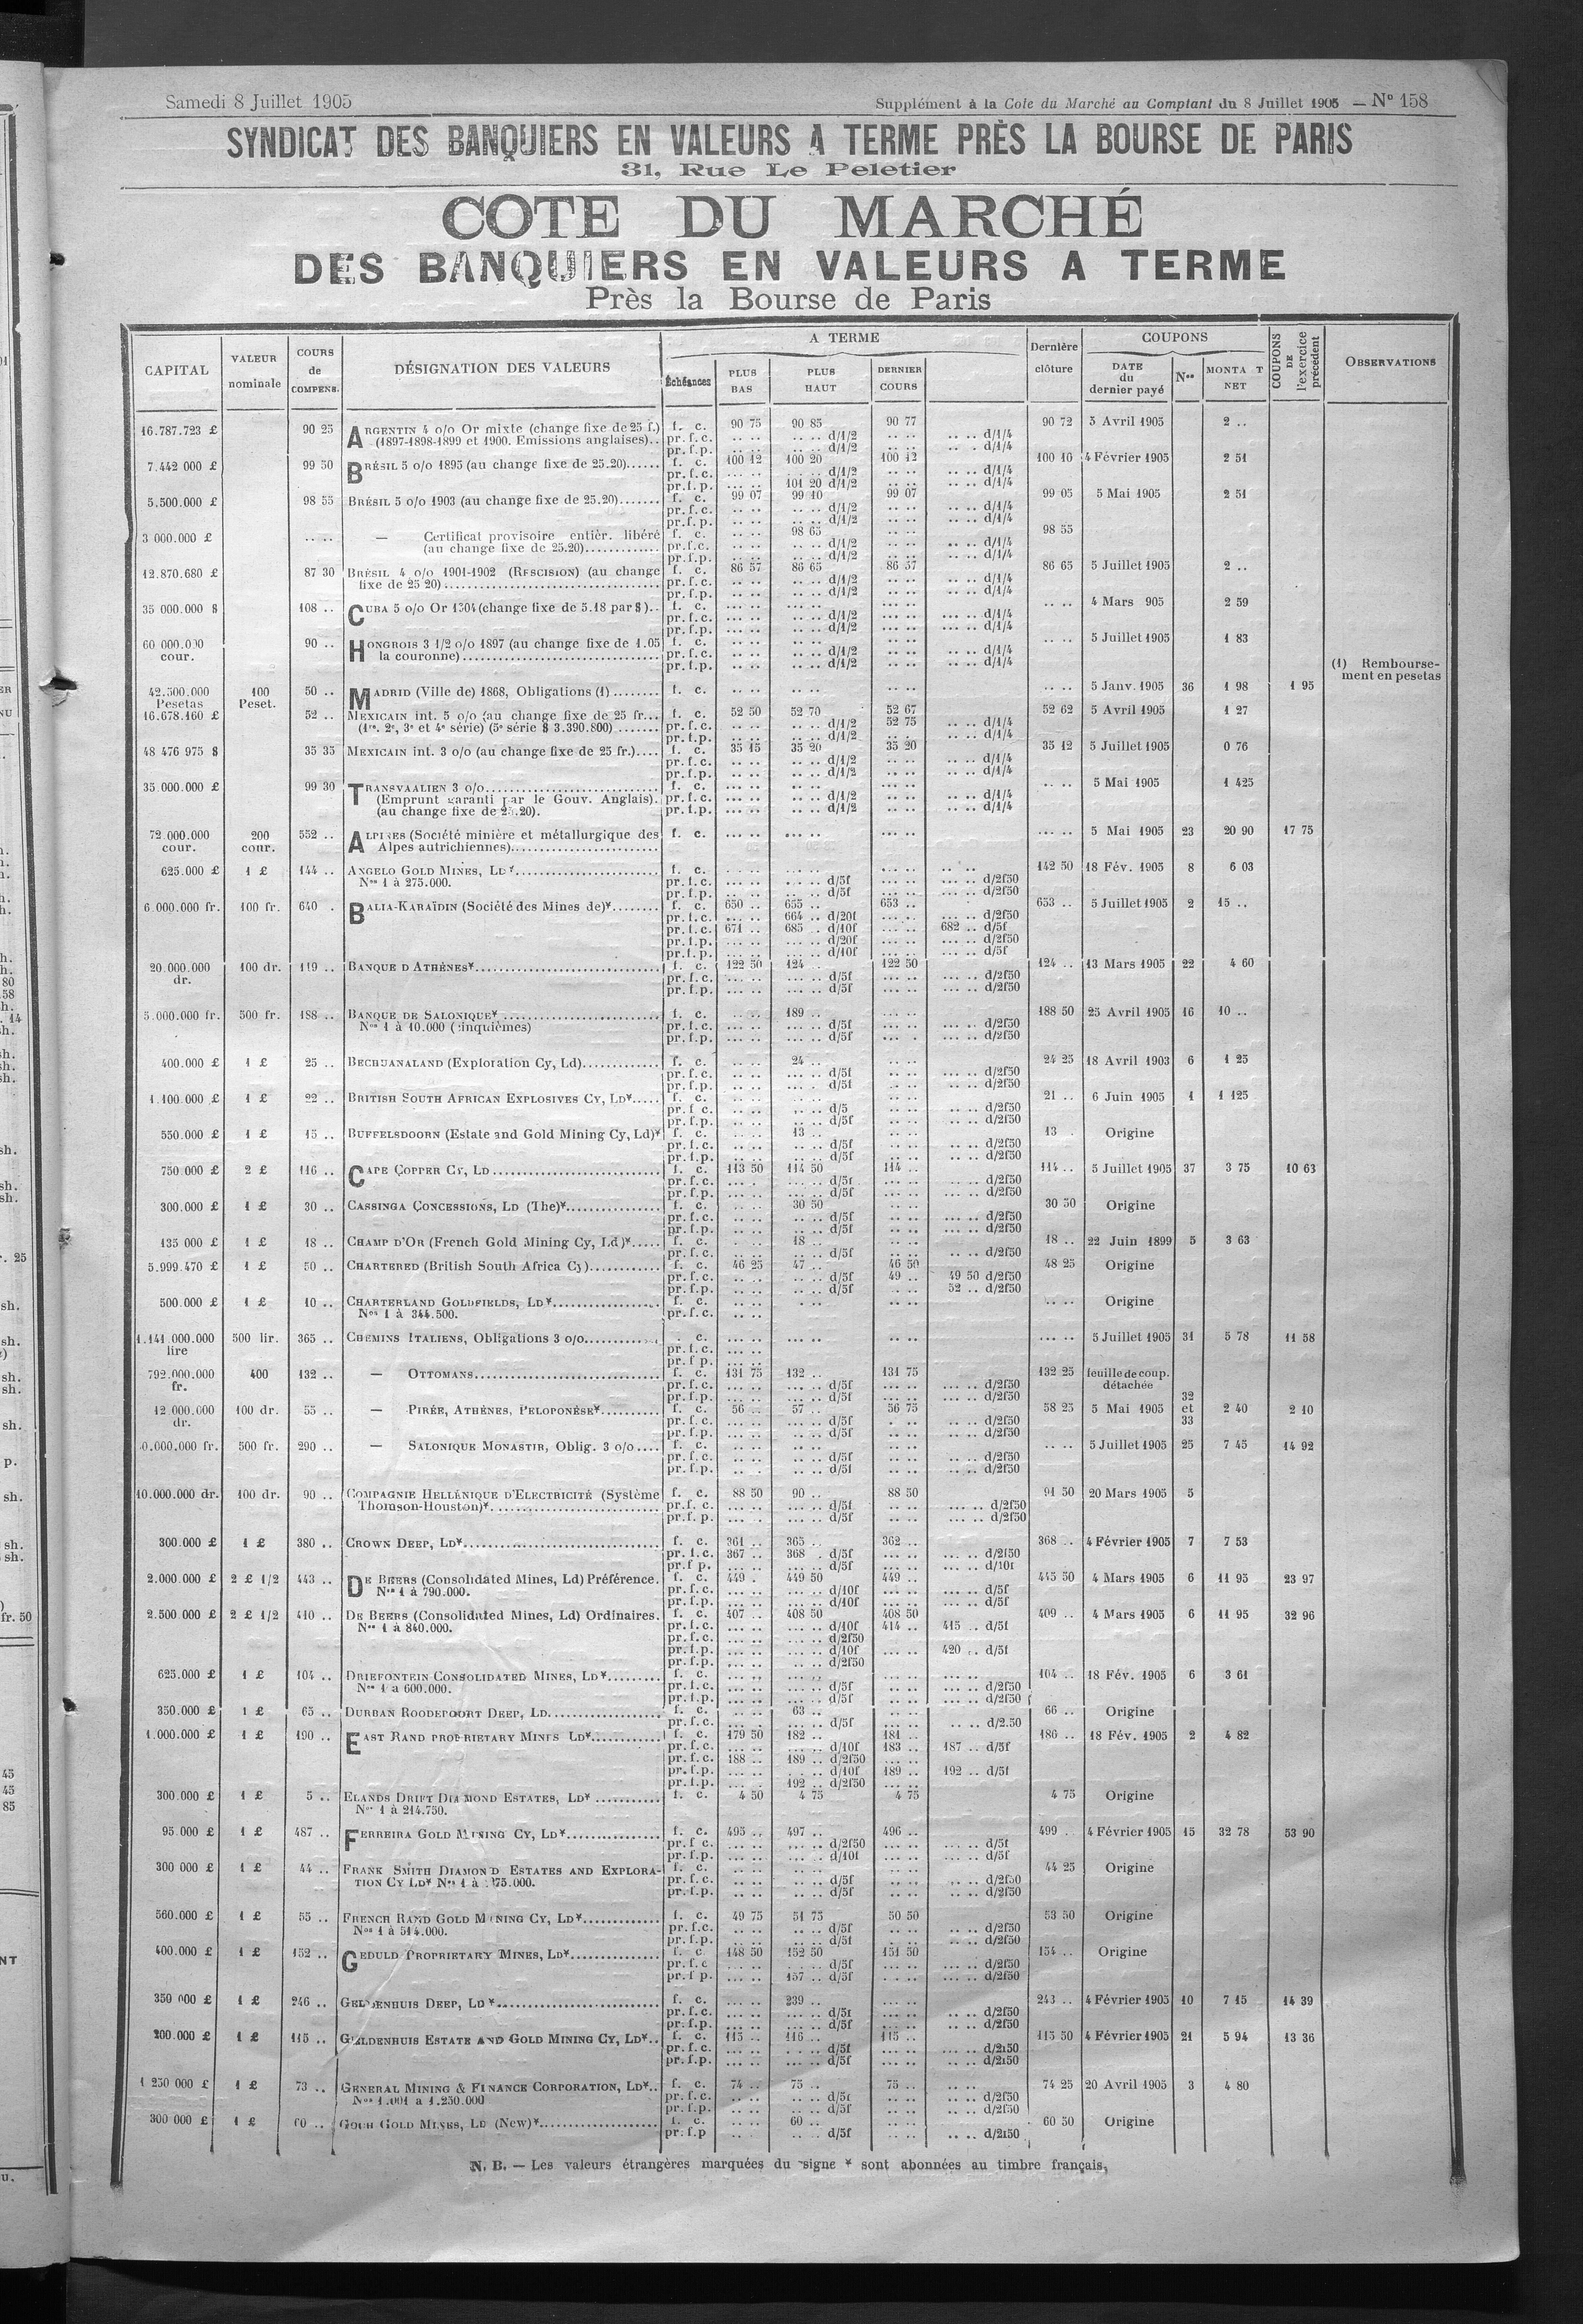 Samedi 8 Juillet 1905
Supplément à la Cote du Marché au Comptant du 8 Juillet 1905 — N° 158
SYNDICAT DES BANQUIERS EN VALEURS A TERME PRÈS LA BOURSE DE PARIS
31, Rue Le Peletier
COTE DU MARCHÉ
DES BANQUIERS EN VALEURS A TERME
Près la Bourse de Paris
CAPITAL VALEUR nominale COURS de COMPENS. DÉSIGNATION DES VALEURS A TERME Échéances PLUS BAS PLUS HAUT DERNIER COURS Dernière clôture COUPONS DATE du dernier payé Nos MONTA T NET COUPONS DE l'exercice précédent OBSERVATIONS
16.787.723 £ 90 25 ARGENTIN 4 o/o Or mixte (change fixe de 25 f.) f. c. 90 75 90 85 90 77 90 72 5 Avril 1905 2 ..
(1897-1898-1899 et 1900. Emissions anglaises).. pr. f. c. .. .. .. .. d/1/2 .. .. .. .. d/1/4
pr. f. p. .. .. .. .. d/1/2 .. .. d/1/4
7.442 000 £ 99 50 BRÉSIL 5 o/o 1895 (au change fixe de 25.20)...... f. c. 100 12 100 20 100 12 100 10 4 Février 1905 2 51
pr. f. c. d/1/2 d/1/4
pr. f. p. 101 20 d/1/2 d/1/4
5.500.000 £ 98 55 BRÉSIL 5 o/o 1903 (au change fixe de 25.20)....... f. c. 99 07 99 10 99 07 99 05 5 Mai 1905 2 51
pr. f. c. d/1/2 d/1/4
pr. f. p. d/1/2 d/1/4
3 000.000 £ .. .. — Certificat provisoire entièr. libéré f. c. .. .. 98 65 98 55
(au change fixe de 25.20)............ pr. f. c. d/1/2 d/1/4
pr. f. p. d/1/2 d/1/4
12.870.680 £ 87 30 BRÉSIL 4 o/o 1901-1902 (RESCISION) (au change f. c. 86 57 86 65 86 57 86 65 5 Juillet 1905 2 ..
fixe de 25 20)................ pr. f. c. d/1/2 d/1/4
pr. f. p. d/1/2 d/1/4
35 000.000 $ 108 .. CUBA 5 o/o Or 1904 (change fixe de 5.18 par $).. f. c. 4 Mars 905 2 59
pr. f. c. d/1/2 d/1/4
pr. f. p. d/1/2 d/1/4
60 000.000 cour. 90 .. HONGROIS 3 1/2 o/o 1897 (au change fixe de 1.05 f. c. 5 Juillet 1905 1 83
la couronne)................ pr. f. c. d/1/2 d/1/4
pr. f. p. d/1/2 d/1/4
(1) Rembourse-
ment en pesetas
42.500.000 Pesetas 100 Peset. 50 .. MADRID (Ville de) 1868, Obligations (1)........ f. c. 5 Janv. 1905 36 1 98 1 95
16.678.160 £ 52 .. MEXICAIN int. 5 o/o (au change fixe de 25 fr... f. c. 52 50 52 70 52 67 52 62 5 Avril 1905 1 27
(1re. 2e, 3e et 4e série) (5e série $ 3.390.800)....... pr. f. c. d/1/2 52 75 d/1/4
pr. f. p. d/1/2 d/1/4
48 476 975 $ 35 35 MEXICAIN int. 3 o/o (au change fixe de 25 fr.).... f. c. 35 15 35 20 35 20 35 12 5 Juillet 1905 0 76
pr. f. c. d/1/2 d/1/4
pr. f. p. d/1/2 d/1/4
35.000.000 £ 99 30 TRANSVAALIEN 3 o/o................ f. c. 5 Mai 1905 1 425
(Emprunt garanti par le Gouv. Anglais). pr. f. c. d/1/2 d/1/4
(au change fixe de 25.20). pr. f. p. d/1/2 d/1/4
72.000.000 cour. 200 cour. 552 .. ALPINES (Société minière et métallurgique des f. c. 5 Mai 1905 23 20 90 17 75
Alpes autrichiennes)................
625.000 £ 1 £ 144 .. ANGELO GOLD MINES, LD¥................ f. c. 142 50 18 Fév. 1905 8 6 03
Nos 1 à 275.000. pr. f. c. d/5f d/2f50
pr. f. p. d/5f d/2f50
6.000.000 fr. 100 fr. 640 . BALIA-KARAÏDIN (Société des Mines de)¥........ f. c. 650 .. 655 .. 653 .. 653 .. 5 Juillet 1905 2 15 ..
pr. f. c. 664 .. d/20f d/2f50
pr. f. c. 671 .. 685 .. d/10f 682 .. d/5f
pr. f. p. d/20f d/2f50
pr. f. p. d/10f d/5f
20.000.000 dr. 100 dr. 119 .. BANQUE D ATHÈNES¥................ f. c. 122 50 124 . 122 50 124 .. 13 Mars 1905 22 4 60
pr. f. c. d/5f d/2f50
pr. f. p. d/5f d/2f50
5.000.000 fr. 500 fr. 188 .. BANQUE DE SALONIQUE¥................ f. c. 189 .. 188 50 25 Avril 1905 16 10 ..
Nos 1 à 10.000 (cinquièmes) pr. f. c. d/5f d/2f50
pr. f. p. d/5f d/2f50
400.000 £ 1 £ 25 .. BECHUANALAND (Exploration Cy, Ld)............ f. c. 24 .. 24 25 18 Avril 1903 6 1 25
pr. f. c. d/5f d/2f50
pr. f. p. d/5f d/2f50
1.100.000 £ 1 £ 22 .. BRITISH SOUTH AFRICAN EXPLOSIVES CY, LD¥..... f. c. 21 .. 6 Juin 1905 1 1 125
pr. f. c. d/5 d/2f50
pr. f. p. d/5f d/2f50
550.000 £ 1 £ 15 .. BUFFELSDOORN (Estate and Gold Mining Cy, Ld)¥ f. c. 13 .. 13 . Origine
pr. f. c. d/5f d/2f50
pr. f. p. d/5f d/2f50
750.000 £ 2 £ 116 .. CAPE COPPER CY, LD................ f. c. 113 50 114 50 114 .. 114 .. 5 Juillet 1905 37 3 75 10 63
pr. f. c. d/5f d/2f50
pr. f. p. d/5f d/2f50
300.000 £ 1 £ 30 .. CASSINGA CONCESSIONS, LD (The)¥............ f. c. 30 50 30 50 Origine
pr. f. c. d/5f d/2f50
pr. f. p. d/5f d/2f50
135 000 £ 1 £ 18 .. CHAMP D'OR (French Gold Mining Cy, Ld)¥..... f. c. 18 .. 18 .. 22 Juin 1899 5 3 63
pr. f. c. d/5f d/2f50
5.999.470 £ 1 £ 50 .. CHARTERED (British South Africa Cy)............ f. c. 46 25 47 .. 46 50 48 25 Origine
pr. f. c. d/5f 49 .. 49 50 d/2f50
pr. f. p. d/5f 52 .. d/2f50
500.000 £ 1 £ 10 .. CHARTERLAND GOLDFIELDS, LD¥................ f. c. Origine
Nos 1 à 344.500. pr. f. c.
1.141.000.000 lire 500 lir. 365 .. CHEMINS ITALIENS, Obligations 3 o/o............ . c. 5 Juillet 1905 31 5 78 11 58
pr. f. c.
pr. f p.
792.000.000 fr. 400 132 .. — OTTOMANS................ f. c. 131 75 132 .. 131 75 132 25 feuille de coup. détachée
pr. f. c. d/5f d/2f50
pr. f. p. d/5f d/2f50
12.000.000 dr. 100 dr. 55 .. — PIRÉE, ATHÈNES, PELOPONÈSE¥.......... f. c. 56 .. 57 .. 56 75 58 25 5 Mai 1905 32 et 33 2 40 2 10
pr. f. c. d/5f d/2f50
pr. f. p. d/5f d/2f50
0.000.000 fr. 500 fr. 290 .. — SALONIQUE MONASTIR, Oblig. 3 o/o.... f. c. 5 Juillet 1905 25 7 45 14 92
pr. f. c. d/5f d/2f50
pr. f. p. d/5f d/2f50
10.000.000 dr. 100 dr. 90 .. COMPAGNIE HELLÉNIQUE D'ELECTRICITÉ (Système f. c. 88 50 90 .. 88 50 91 50 20 Mars 1905 5
Thomson-Houston)¥................ pr. f. c. d/5f d/2f50
pr. f. p. d/5f d/2f50
300.000 £ 1 £ 380 .. CROWN DEEP, LD¥................ f. c. 361 .. 365 .. 362 .. 368 .. 4 Février 1905 7 7 53
pr. f. c. 367 .. 368 . d/5f d/2f50
pr. f p. d/5f d/10f
2.000.000 £ 2 £ 1/2 443 .. DE BEERS (Consolidated Mines, Ld) Préférence. f. c. 449 . 449 50 449 .. 445 50 4 Mars 1905 6 11 95 23 97
Nos 1 à 790.000. pr. f. c. d/10f d/5f
pr. f. p. d/10f d/5f
2.500.000 £ 2 £ 1/2 410 .. DE BEERS (Consolidated Mines, Ld) Ordinaires. f. c. 407 .. 408 50 408 50 409 .. 4 Mars 1905 6 11 95 32 96
Nos 1 à 840.000. pr. f. c. d/10f 414 .. 415 .. d/5f
pr. f. c. d/2f50
pr. f. p. d/10f 420 .. d/5f
pr. f. p. d/2f50
625.000 £ 1 £ 104 .. DRIEFONTEIN CONSOLIDATED MINES, LD¥......... f. c. 104 .. 18 Fév. 1905 6 3 61
Nos 1 à 600.000. pr. f. c. d/5f d/2f50
pr. f. p. d/5f d/2f50
350.000 £ 1 £ 65 .. DURBAN ROODEPOORT DEEP, LD................ f. c. 63 .. 66 .. Origine
pr. f. c. d/5f d/2.50
1.000.000 £ 1 £ 190 .. EAST RAND PROPRIETARY MINES LD¥............ f. c. 179 50 182 .. 181 .. 186 .. 18 Fév. 1905 2 4 82
pr. f. c. d/10f 183 .. 187 .. d/5f
pr. f. c. 188 .. 189 .. d/2f50
pr. f. p. d/10f 189 .. 192 .. d/5f
pr. f. p. 192 .. d/2f50
300.000 £ 1 £ 5 .. ELANDS DRIFT DIAMOND ESTATES, LD¥........... f. c. 4 50 4 75 4 75 4 75 Origine
Nos 1 à 214.750.
95.000 £ 1 £ 487 .. FERREIRA GOLD MINING CY, LD¥................ f. c. 495 .. 497 .. 496 .. 499 .. 4 Février 1905 15 32 78 53 90
pr. f c. d/2f50 d/5f
pr. f. p. d/10f d/5f
300 000 £ 1 £ 44 .. FRANK SMITH DIAMOND ESTATES AND EXPLORA- f. c. 44 25 Origine
TION CY LD¥ Nos 1 à 75.000. pr. f. c. d/5f d/2f50
pr. f. p. d/5f d/2f50
560.000 £ 1 £ 55 .. FRENCH RAND GOLD MINING CY, LD¥............ f. c. 49 75 51 75 50 50 53 50 Origine
Nos 1 à 514.000. pr. f. c. d/5f d/2f50
pr. f. p. d/5f d/2f50
400.000 £ 1 £ 152 .. GEDULD PROPRIETARY MINES, LD¥................ f. c. 148 50 152 50 151 50 154 .. Origine
pr. f. c d/5f d/2f50
pr. f p. 157 .. d/5f d/2f50
350 000 £ 1 £ 246 .. GELDENHUIS DEEP, LD¥................ f. c. 239 .. 243 .. 4 Février 1905 10 7 15 14 39
pr. f. c. d/5f d/2f50
pr. f. p. d/5f d/2f50
200.000 £ 1 £ 115 .. GELDENHUIS ESTATE AND GOLD MINING CY, LD¥.. f. c. 115 .. 116 .. 115 .. 115 50 4 Février 1905 21 5 94 13 36
pr. f. c. d/5f d/2f50
pr. f. p. d/5f d/2f50
1 250 000 £ 1 £ 73 .. GENERAL MINING & FINANCE CORPORATION, LD¥.. f. c. 74 .. 75 .. 75 .. 74 25 20 Avril 1905 3 4 80
Nos 1.001 à 1.250.000 pr. f. c. d/5f d/2f50
pr. f. p. d/5f d/2f50
300 000 £ 1 £ 60 .. GOCH GOLD MINES, LD (New)¥................ f. c. 60 .. 60 50 Origine
pr. f. p d/5f d/2f50
N. B. — Les valeurs étrangères marquées du signe ¥ sont abonnées au timbre français.